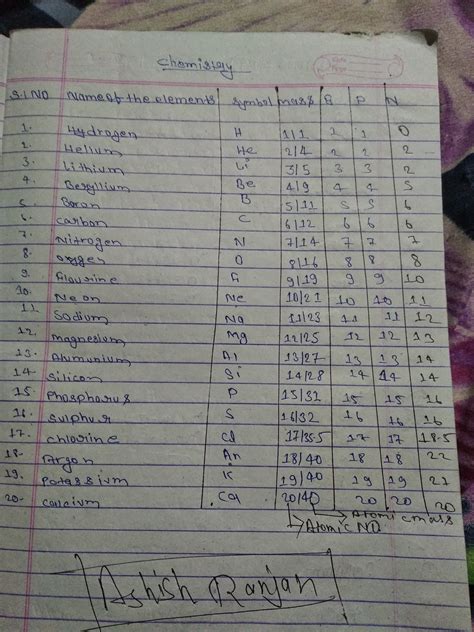 Chemistry
S.I NO Name of the elements symbol mass E P N
1. Hydrogen H 1/1 1 1 0
2. Helium He 2/4 2 2 2
3. Lithium Li 3/5 3 3 2
4. Beryllium Be 4/9 4 4 5
5. Boron B 5/11 5 5 6
6. Carbon C 6/12 6 6 6
7. Nitrogen N 7/14 7 7 7
8. Oxygen O 8/16 8 8 8
9. Flourine F 9/19 9 9 10
10. Neon Ne 10/21 10 10 11
11. Sodium Na 11/23 11 11 12
12. Magnesium Mg 12/25
13. Alumunium Al 13/27 13 13 14
14. Silicon Si 14/28 14 14 14
15. Phosphorus P 15/32 15 15 16
16. Sulphur S 16/32 16 16 16
17. Chlorine Cl 17/35.5 17 17 18.5
18. Argon An 18/40 18 18 22
19. Potassium K 19/40 19 19 21
20. Calcium Ca 20/40 20 20 20
Atomic mass
Atomic NO
Ashish Ranjan